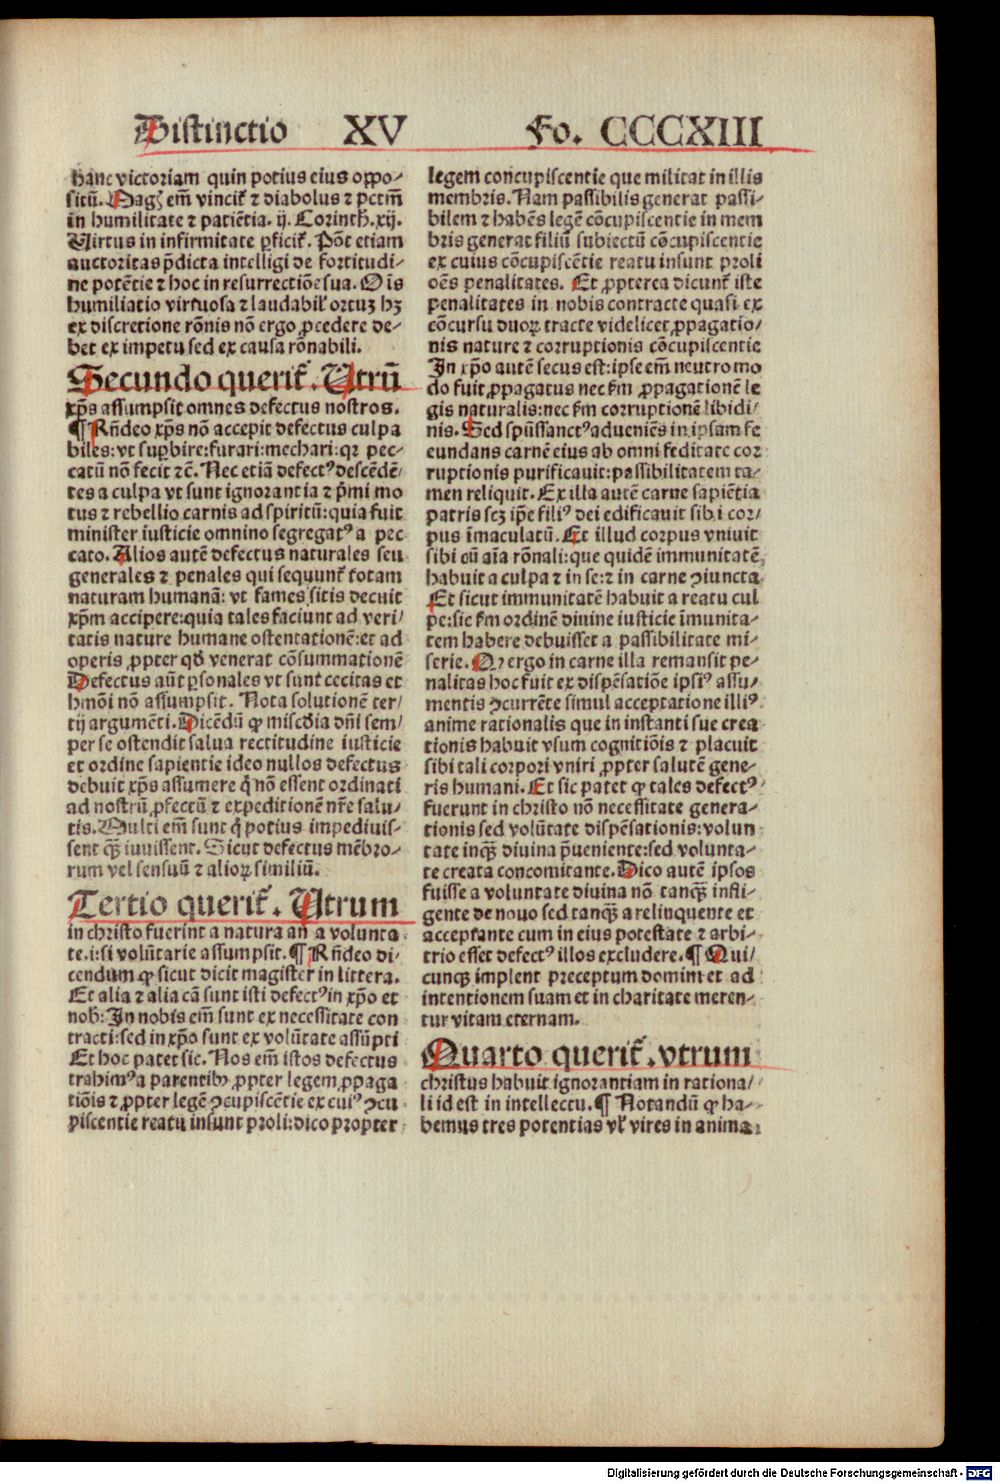 Distinctio XV Fo. CCCXIII
hanc victoriam quin potius eius oppo-
sitū. Magꝭ em̄ vincit᷑ ⁊ diabolus ⁊ pctm̄
in humilitate ⁊ patiētia. ij. Corinth. xij.
Virtus in infirmitate ꝑficit᷑. Pōt etiam
auctoritas p̄dicta intelligi de fortitudi-
ne potētie ⁊ hoc in resurrectiōe sua. Oīs
humiliatio virtuosa ⁊ laudabił ortuꝫ hꝫ
ex discretione rōnis nō ergo ꝓcedere de-
bet ex impetu sed ex causa rōnabili.
Secundo querit᷑. Utrū
xp̄s assumpsit omnes defectus nostros.
¶ Rñdeo xp̄s nō accepit defectus culpa
biles: vt suꝑbire: furari: mechari: qꝛ pec-
catū nō fecit ⁊č. Nec etiā defectꝰ descēdē-
tes a culpa vt sunt ignorantia ⁊ p̄mi mo
tus ⁊ rebellio carnis ad spiritū: quia fuit
minister iusticie omnino segregatꝰ a pec
cato. Alios autē defectus naturales seu
generales ⁊ penales qui sequunt᷑ totam
naturam humanā: vt fames sitis decuit
xp̄m accipere: quia tales faciunt ad veri-
tatis nature humane ostentationē: et ad
operis ꝓpter qd̄ venerat cōsummationē
Defectus aūt ꝑsonales vt sunt cecitas et
hmōi nō assumpsit. Nota solutionē ter-
tij argumēti. Dicēdū ꝙ mi̅sc̅dia dn̄i sem-
per se ostendit salua rectitudine iusticie
et ordine sapientie ideo nullos defectus
debuit xp̄s assumere q̇ nō essent ordinati
ad nostrū ꝓfectū ⁊ expeditionē nr̄e salu-
tis. Multi em̄ sunt q̇ potius impediuis-
sent qꝫ̄ iuuissent. Sicut defectus mēbro-
rum vel sensuū ⁊ alioꝝ similiū.
Tertio querit᷑. Utrum
in christo fuerint a natura an a volunta
te. i: si volūtarie assumpsit. ¶ Rñdeo di-
cendum ꝙ sicut dicit magister in littera.
Et alia ⁊ alia cā sunt isti defectꝰ in xp̄o et
nob̄: In nobis em̄ sunt ex necessitate con
tracti: sed in xp̄o sunt ex volūtate assūpti
Et hoc patet sic. Nos em̄ istos defectus
trahimꝰ a parentibꝰ ꝓpter legem ꝓpaga
tiōis ⁊ ꝓpter legē ꝯcupiscētie ex cuiꝰ ꝯcu
piscentie reatu insunt proli: dico propter
legem concupiscentie que militat in illis
membris. Nam passibilis generat passi-
bilem ⁊ habēs legē cōcupiscentie in mem
bris generat filiū subiectū cōcupiscentie
ex cuius cōcupiscētie reatu insunt proli
oēs penalitates. Et ꝓpterea dicunt᷑ iste
penalitates in nobis contracte quasi ex
cōcursu duoꝝ tracte videlicet ꝓpagatio-
nis nature ⁊ corruptionis cōcupiscentie
In xp̄o autē secus est: ipse em̄ neutro mo
do fuit ꝓpagatus nec fm̄ ꝓpagationē le
gis naturalis: nec fm̄ corruptionē libidi-
nis. Sed spūssanctꝰ adueniēs in ipsam fe
cundans carnē eius ab omni feditate cor
ruptionis purificauit: passibilitatem ta-
men reliquit. Ex illa autē carne sapiētia
patris scꝫ ip̄e filiꝰ dei edificauit sibi cor-
pus īmaculatū. Et illud corpus vniuit
sibi cū aīa rōnali: que quidē immunitatē
habuit a culpa ⁊ in se: ⁊ in carne ꝯiuncta
Et sicut immunitatē habuit a reatu cul
pe: sic fm̄ ordinē diuine iusticie īmunita-
tem habere debuisset a passibilitate mi-
serie. Qꝛ ergo in carne illa remansit pe-
nalitas hoc fuit ex dispēsatiōe ipsiꝰ assu-
mentis ꝯcurrēte simul acceptatione illiꝰ
anime rationalis que in instanti sue crea
tionis habuit vsum cognitiōis ⁊ placuit
sibi tali corpori vniri ꝓpter salutē gene-
ris humani. Et sic patet ꝙ tales defectꝰ
fuerunt in christo nō necessitate genera-
tionis sed volūtate dispēsationis: volun
tate inqꝫ̄ diuina p̄ueniente: sed volunta-
te creata concomitante. Dico autē ipsos
fuisse a voluntate diuina nō tanqꝫ̄ infli-
gente de nouo sed tanqꝫ̄ a relinquente et
acceptante cum in eius potestate ⁊ arbi-
trio esset defectꝰ illos excludere. ¶ Qui-
cunqꝫ implent preceptum domini et ad
intentionem suam et in charitate meren-
tur vitam eternam.
Quarto querit᷑. vtrum
christus habuit ignorantiam in rationa-
li id est in intellectu. ¶ Notandū ꝙ ha-
bemus tres potentias vł vires in anima:
Digitalisierung gefördert durch die Deutsche Forschungsgemeinschaft - DFG